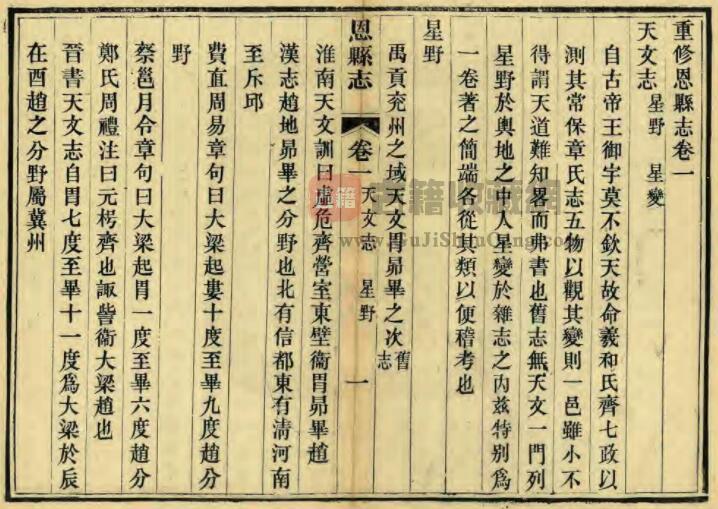 重修恩縣志卷一
天文志 星野 星變
自古帝王御宇莫不欽天故命羲和氏齊七政以
測其常保章氏志五物以觀其變則一邑雖小不
得謂天道難知畧而弗書也舊志無天文一門列
星野於輿地之中人星變於雜志之內茲特別爲
一卷著之簡端各從其類以便稽考也
星野
禹貢兗州之域天文胃昴畢之次舊志
恩縣志 卷一 天文志 星野 一
淮南天文訓曰虛危齊營室東壁衞胃昴畢趙
漢志趙地昴畢之分野也北有信都東有淸河南
至斥邱
費直周易章句曰大梁起婁十度至畢九度趙分
野
蔡邕月令章句曰大梁起胃一度至畢六度趙分
鄭氏周禮注曰元枵齊也諏訾衞大梁趙也
晉書天文志自胃七度至畢十一度爲大梁於辰
在酉趙之分野屬冀州
古籍 古籍收藏網
www.GuJiShouCang.com